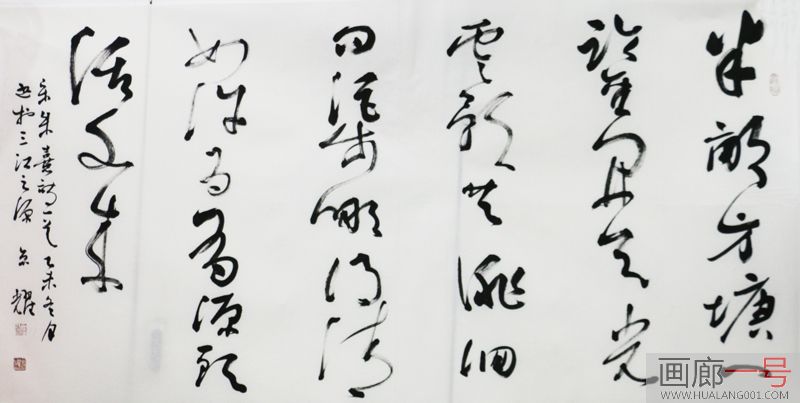 半畝方塘一
鑑開天光
雲影共徘徊
问渠哪得清
如许为有源头
活水来
宋朱熹诗一首 乙未冬月
书於三江之源 耀
画廊一号
WWW.HUALANG001.COM